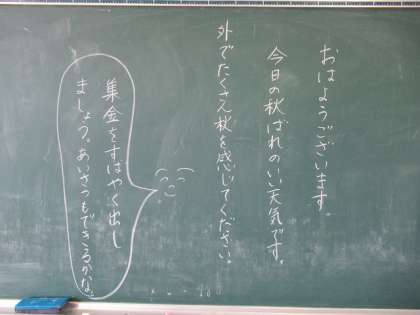 おはようございます。
今日の秋ばれのいい天気です。
外でたくさん秋を感じてください。
集金をすばやく出し
ましょう。あいさつもできるかな。